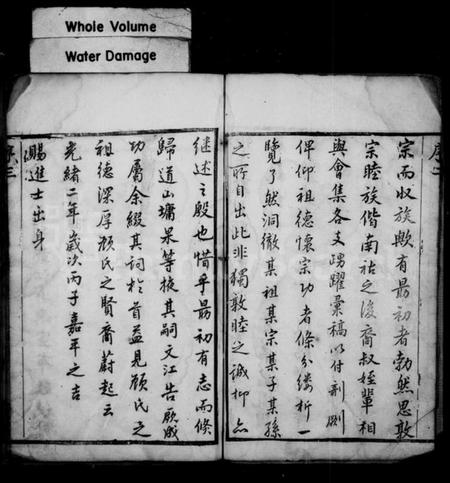 Whole Volume
Water Damage
序二
宗而收族歟有勗初者勃然思敦
宗睦族偕南祜之後裔叔姪輩相
與會集各支踴躍彙稿以付剞劂
俾仰祖德懷宗功者條分縷析一
覽了然洞徹某祖某宗某子某孫
之所自出此非獨敦睦之誠抑亦
继述之殷也惜乎勗初有志而倏
歸道山墉杲等掖其嗣文江告厥成
功屬余綴其詞於首益見顏氏之
祖德深厚顏氏之賢裔蔚起云
光緒二年歲次丙子嘉平之吉
賜進士出身
序三